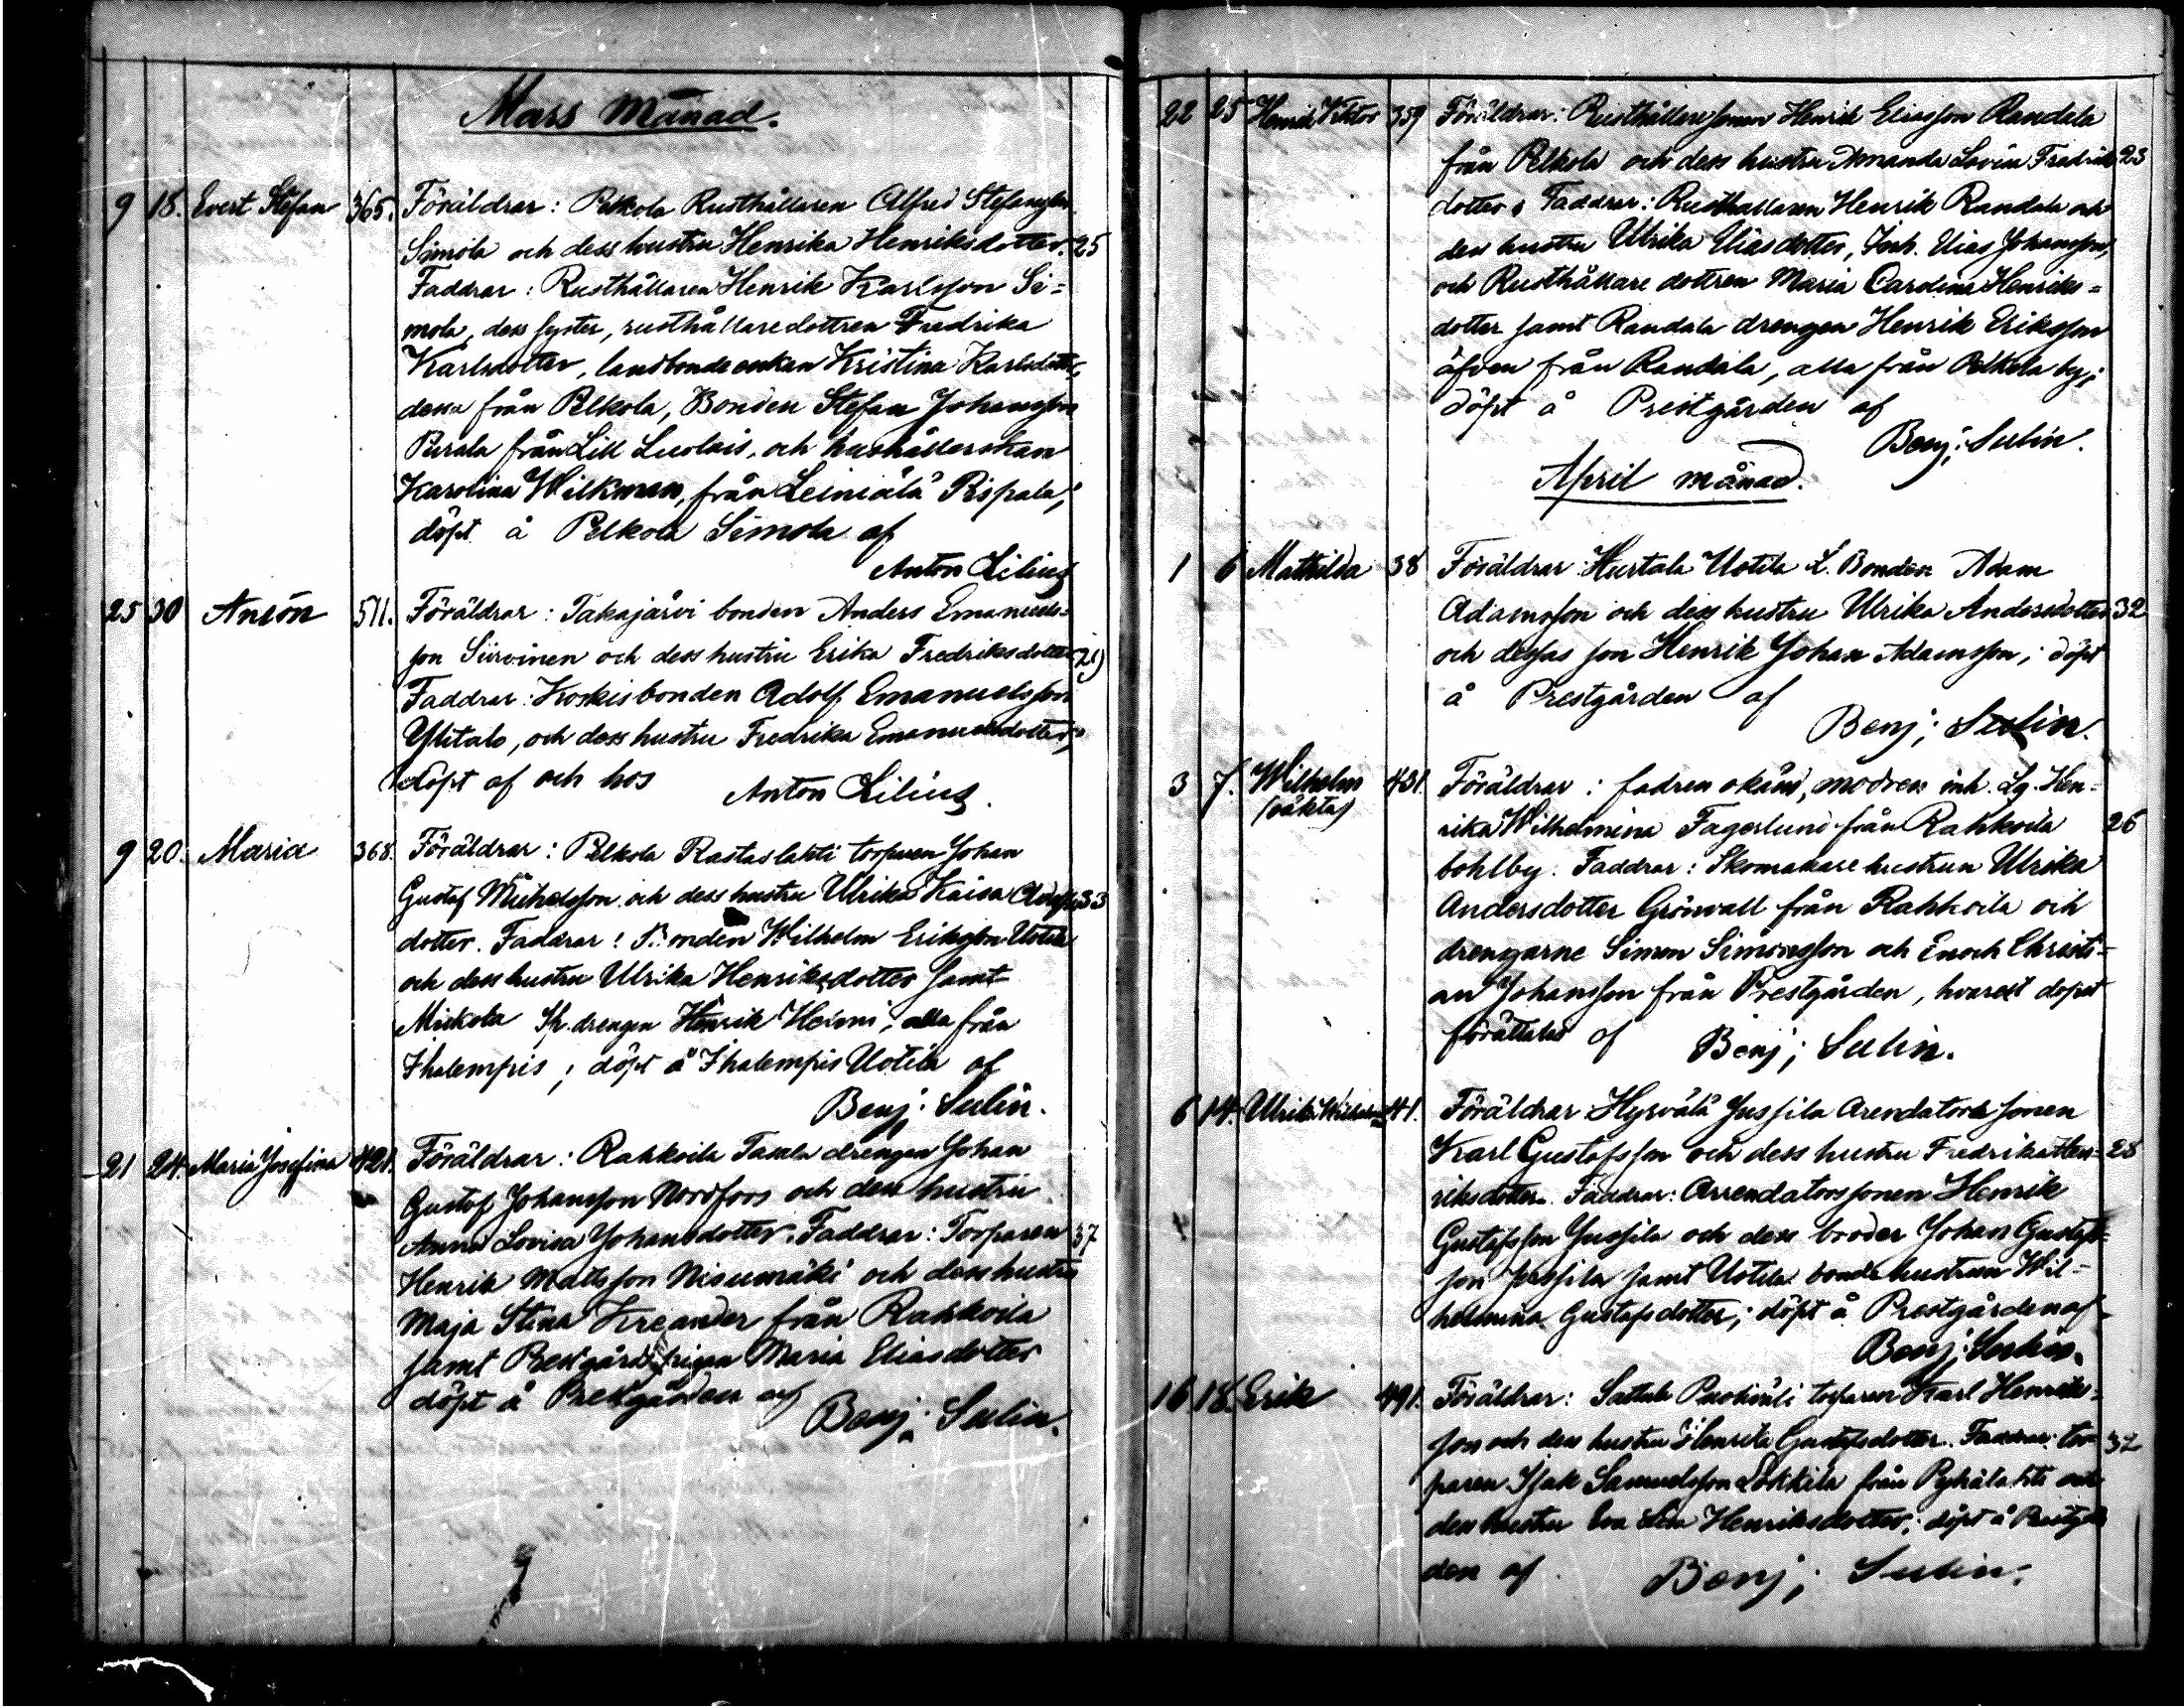 Mars Månad.
9 18. Evert Stefan 365. Föräldrar: Pelkola Rusthållaren Alfred Stefansson
Simola och dess hustru Henrika Henriksdotter. 25
Faddrar: Rusthållaren Henrik Karlsson Si=
mola, dess syster, rusthållaredottren Fredrika
Karlsdotter, landbonde enkan Kristina Karlsdotter,
dessa från Pelkola, Bonden Stefan Johansson
Pirala från Lill Luolais, och hushållerskan
Karolina Wilkman, från Leiniälä Rispala;
döpt å Pelkola Simola af
Anton Lilius
25 30 Anton 511. Föräldrar: Takajärvi bonden Anders Emanuels=
son Siirvinen och dess hustru Erika Fredriksdotter 29
Faddrar: Koskis bonden Adolf Emanuelsson
Ylitalo, och dess hustru Fredrika Emanuelsdotter;
döpt af och hos Anton Lilius.
9 20. Maria 368. Föräldrar: Pelkola Rastaslahti torparen Johan
Gustaf Michelsson och dess hustru Ulrika Kaisa Adolfs 33
dotter. Faddrar: Bonden Wilhelm Eriksson Uotila
och dess hustru Ulrika Henriksdotter samt
Mickola Sp. drengen Henrik Heimi, alla från
Ihalempis; döpt å Ihalempis Uotila af
Benj: Sulin.
21 24. Maria Josefina 421. Föräldrar: Rahkoila Taxela drengen Johan
Gustaf Johansson Nordfors och dess hustru
Anna Lovisa Johansdotter. Faddrar: Torparen 37
Henrik Matsson Nisumäki och dess hustru
Maja Stina Kreander från Rahkoila
samt Prestgårds pigan Maria Eliasdotter
döpt å Prestgården af Benj: Sulin.
22 25 Henrik Viktor 359 Föräldrar: Rusthållaresonen Henrik Eliasson Randala
från Pelkola och dess hustru Amanda Lovisa Fredriks 23
dotter. Faddrar: Rusthållaren Henrik Randala och
dess hustru Ulrika Eliasdotter, Inh. Elias Johansson,
och Rusthållare dottren Maria Carolina Henriks=
dotter samt Randala drengen Henrik Eriksson
äfven från Randala, alla från Pelkola by;
döpt å Prestgården af
Benj: Sulin.
April månad.
1 6 Mathilda 38 Föräldrar: Hurtala Uotila L. Bonden Adam
Adamsson och dess hustru Ulrika Andersdotter 32
och dessas son Henrik Johan Adamsson; döpt
å Prestgården af
Benj; Sulin.
3 7. Wilhelm 431. Föräldrar: fadren okänd, modren inh. Lg. Hen=
(oäkta) rika Wilhelmina Fagerlund från Rahkoila 26
bohlby. Faddrar: Skomakare hustrun Ulrika
Andersdotter Grönvall från Rahkoila och
drengarne Simon Simonsson och Enoch Christi=
an Johansson från Prestgården, hvarest dopet
förättades af Benj; Sulin.
6 14. Ulrika Wilhelmina 41. Föräldrar Hyrvälä Jussila Arendators sonen
Karl Gustafsson och dess hustru Fredrika Hen= 28
riksdotter. Faddrar: Arrendators sonen Henrik
Gustafsson Jussila och dess broder Johan Gustafs=
son Jussila samt Uotila bondehustrun Wil=
helmina Gustafsdotter; döpt å Prestgården af
Benj; Sulin.
16 18. Erik 491. Föräldrar: Sattula torparen Karl Henriks=
son och dess hustru Henrika Gustafsdotter. Faddrar: tor= 32
paren Isak Samuelsson från Pyhälahti och
dess hustru Eva Lisa Henriksdotter; döpt å Prestgår
den af Benj; Sulin.